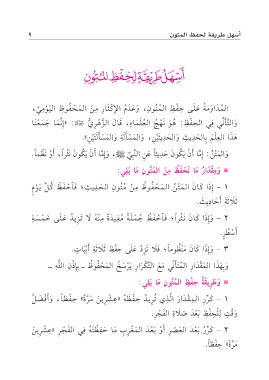 أسهل طريقة لحفظ المتون
٩
أَسْهَلُ طَرِيقَةٍ لِحِفْظِ المُتُونِ
المُدَاوَمَةُ عَلَى حِفْظِ المُتُونِ، وَعَدَمُ الإِكْثَارِ مِنَ المَحْفُوظِ اليَوْمِيِّ،
وَالتَّأَنِّي فِي الحِفْظِ: هُوَ نَهْجُ العُلَمَاءِ، قَالَ الزُّهْرِيُّ رحمه الله: «إِنَّمَا جَمَعْنَا
هَذَا العِلْمَ بِالحَدِيثِ وَالحَدِيثَيْنِ، وَالمَسْأَلَةِ وَالمَسْأَلَتَيْنِ».
وَالمَتْنُ: إِمَّا أَنْ يَكُونَ حَدِيثاً عَنِ النَّبِيِّ ﷺ، وَإِمَّا أَنْ يَكُونَ نَثْراً، أَوْ نَظْماً.
* وَمِقْدَارُ مَا تَحْفَظُ مِنَ المُتُونِ مَا يَلِي:
١ - إِذَا كَانَ المَتْنُ المَحْفُوظُ مِنْ مُتُونِ الحَدِيثِ؛ فَاحْفَظْ كُلَّ يَوْمٍ
ثَلَاثَةَ أَحَادِيثَ.
٢ - وَإِذَا كَانَ نَثْراً؛ فَاحْفَظْ جُمْلَةً مُفِيدَةً مِنْهُ لَا تَزِيدُ عَلَى خَمْسَةِ
أَسْطُرٍ.
٣ - وَإِذَا كَانَ مَنْظُوماً؛ فَلَا تَزِدْ عَلَى حِفْظِ ثَلَاثَةِ أَبْيَاتٍ.
وَبِهَذَا المِقْدَارِ المُتَأَنِّي مَعَ التَّكْرَارِ يَرْسَخُ المَحْفُوظُ - بِإِذْنِ اللَّهِ -.
* وَطَرِيقَةُ حِفْظِ المُتُونِ مَا يَلِي:
١ - كَرِّرِ المِقْدَارَ الَّذِي تُرِيدُ حِفْظَهُ «عِشْرِينَ مَرَّةً» حِفْظاً، وَأَفْضَلُ
وَقْتٍ لِلْحِفْظِ بَعْدَ صَلَاةِ الفَجْرِ.
٢ - كَرِّرْ بَعْدَ العَصْرِ أَوْ بَعْدَ المَغْرِبِ مَا حَفِظْتَهُ فِي الفَجْرِ «عِشْرِينَ
مَرَّةً» حِفْظاً.